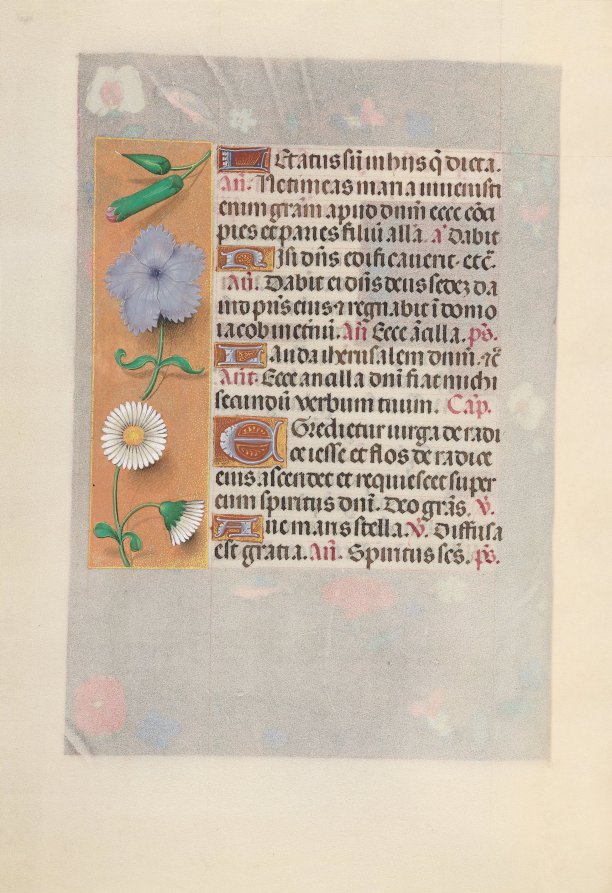 Letatus sū in hijs q̄ dicta.
Añ. Ne timeas maria inuenisti
enim grām apud dnm ecce cōci
pies et paries filiū all'a. a' Dabit
Nisi dn̄s edificauerit. etc̄.
Añ. Dabit ei dn̄s deus sedez da
uid pris eius ⁊ regnabit ī domo
iacob in etnū. Añ Ecce ācilla. ps.
Lauda iherusalem dnm. ⁊c̄
Añt. Ecce ancilla dnī fiat michi
secundū verbum tuum. Cap.
Egredietur uirga de radi
ce iesse et flos de radice
eius ascendet et requiescet super
eum spiritus dnī. Deo grās. v.
Aue maris stella. v. Diffusa
est gratia. Añ. Spiritus scs̄. ps.